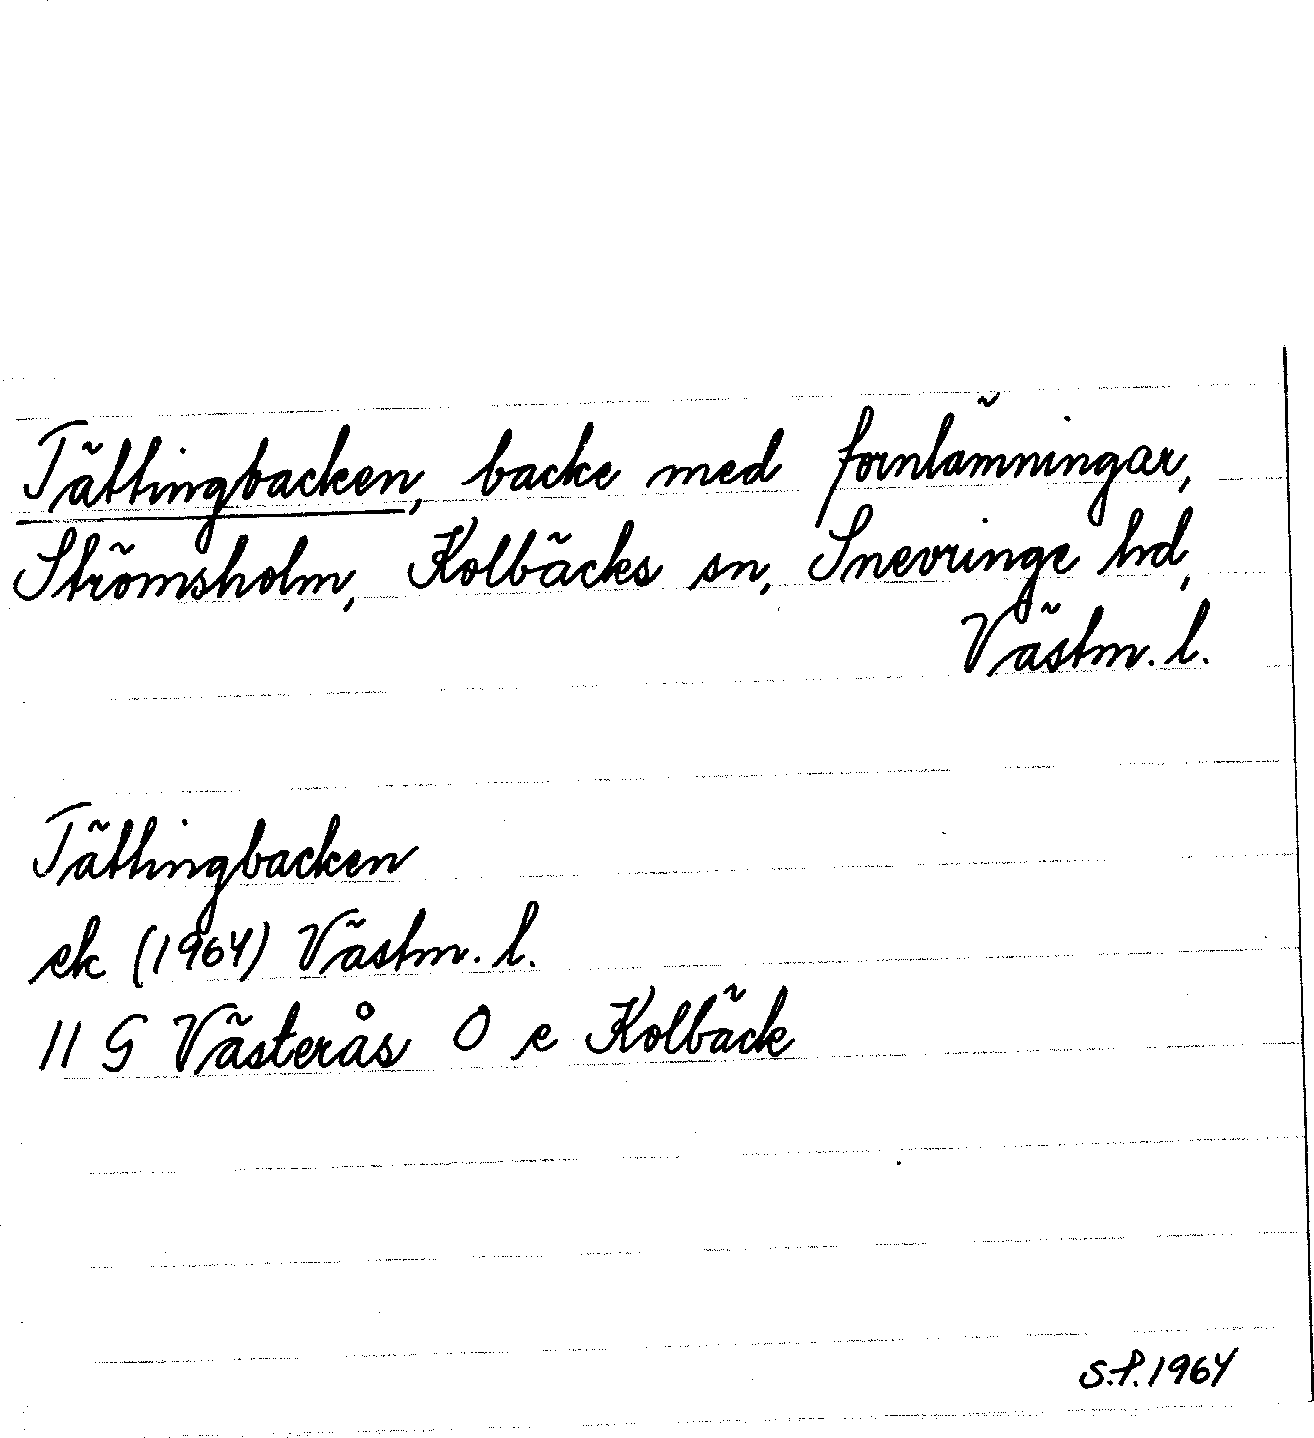 Tätlingbacken, backe med fornlämningar,
Strömsholm, Kolbäcks sn, Snevringe hd,
Västm. l.
Tätlingbacken
ek (1964) Västm. l.
11 G Västerås O e Kolbäck
S.P. 1964